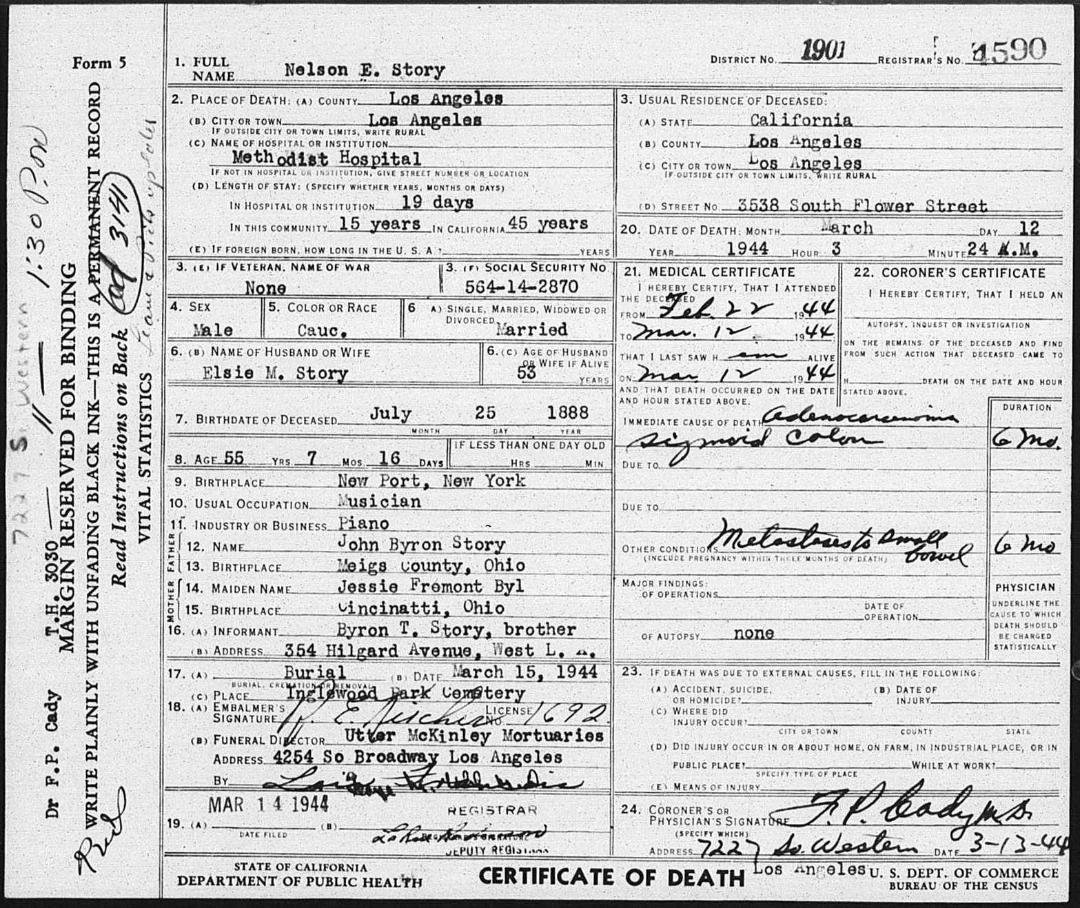 Form 5
1. FULL NAME Nelson E. Story
DISTRICT NO. 1901 REGISTRAR'S NO. 4590
2. PLACE OF DEATH: (A) COUNTY Los Angeles
(B) CITY OR TOWN Los Angeles
IF OUTSIDE CITY OR TOWN LIMITS, WRITE RURAL
(C) NAME OF HOSPITAL OR INSTITUTION
Methodist Hospital
IF NOT IN HOSPITAL OR INSTITUTION, GIVE STREET NUMBER OR LOCATION
(D) LENGTH OF STAY: (SPECIFY WHETHER YEARS, MONTHS OR DAYS)
IN HOSPITAL OR INSTITUTION 19 days
IN THIS COMMUNITY 15 years IN CALIFORNIA 45 years
(E) IF FOREIGN BORN, HOW LONG IN THE U. S. A? YEARS
3. USUAL RESIDENCE OF DECEASED:
(A) STATE California
(B) COUNTY Los Angeles
(C) CITY OR TOWN Los Angeles
IF OUTSIDE CITY OR TOWN LIMITS, WRITE RURAL
(D) STREET NO. 3538 South Flower Street
20. DATE OF DEATH: MONTH March DAY 12
YEAR 1944 HOUR 3 MINUTE 24 A.M.
3. (E) IF VETERAN, NAME OF WAR
None
3. (F) SOCIAL SECURITY NO
564-14-2870
4. SEX
Male
5. COLOR OR RACE
Cauc.
6 A) SINGLE, MARRIED, WIDOWED OR DIVORCED
Married
6. (B) NAME OF HUSBAND OR WIFE
Elsie M. Story
6. (C) AGE OF HUSBAND OR WIFE IF ALIVE
53 YEARS
7. BIRTHDATE OF DECEASED July 25 1888
MONTH DAY YEAR
8. AGE 55 YRS 7 MOS 16 DAYS
IF LESS THAN ONE DAY OLD
HRS MIN
9. BIRTHPLACE New Port, New York
10. USUAL OCCUPATION Musician
11. INDUSTRY OR BUSINESS Piano
FATHER
12. NAME John Byron Story
13. BIRTHPLACE Meigs County, Ohio
MOTHER
14. MAIDEN NAME Jessie Fremont Byl
15. BIRTHPLACE Cincinatti, Ohio
16. (A) INFORMANT Byron T. Story, brother
(B) ADDRESS 354 Hilgard Avenue, West L. A.
17. (A) Burial (B) DATE March 15, 1944
BURIAL, CREMATION OR REMOVAL
(C) PLACE Inglewood Park Cemetery
18. (A) EMBALMER'S SIGNATURE LICENSE NO. 1692
(B) FUNERAL DIRECTOR Utter McKinley Mortuaries
ADDRESS 4254 So Broadway Los Angeles
BY
MAR 14 1944 REGISTRAR
19. (A) (B)
DATE FILED
DEPUTY REGISTRAR
21. MEDICAL CERTIFICATE
I HEREBY CERTIFY, THAT I ATTENDED THE DECEASED
FROM Feb. 22 1944
TO Mar. 12 1944
THAT I LAST SAW H em ALIVE
ON Mar. 12 1944
AND THAT DEATH OCCURRED ON THE DATE AND HOUR STATED ABOVE.
22. CORONER'S CERTIFICATE
I HEREBY CERTIFY, THAT I HELD AN
AUTOPSY, INQUEST OR INVESTIGATION
ON THE REMAINS OF THE DECEASED AND FIND FROM SUCH ACTION THAT DECEASED CAME TO
H DEATH ON THE DATE AND HOUR STATED ABOVE.
DURATION
IMMEDIATE CAUSE OF DEATH Adenocarcinoma
Sigmoid Colon 6 Mo.
DUE TO
DUE TO
OTHER CONDITIONS Metastases to small bowel 6 Mo
(INCLUDE PREGNANCY WITHIN THREE MONTHS OF DEATH)
MAJOR FINDINGS:
OF OPERATIONS
DATE OF OPERATION
OF AUTOPSY none
PHYSICIAN
UNDERLINE THE CAUSE TO WHICH DEATH SHOULD BE CHARGED STATISTICALLY
23. IF DEATH WAS DUE TO EXTERNAL CAUSES, FILL IN THE FOLLOWING:
(A) ACCIDENT, SUICIDE, OR HOMICIDE? (B) DATE OF INJURY
(C) WHERE DID INJURY OCCUR?
CITY OR TOWN COUNTY STATE
(D) DID INJURY OCCUR IN OR ABOUT HOME, ON FARM, IN INDUSTRIAL PLACE, OR IN
PUBLIC PLACE? WHILE AT WORK?
SPECIFY TYPE OF PLACE
(E) MEANS OF INJURY
24. CORONER'S OR PHYSICIAN'S SIGNATURE F. P. Cady M.D.
(SPECIFY WHICH)
ADDRESS 7227 So. Western DATE 3-13-44
Los Angeles
STATE OF CALIFORNIA
DEPARTMENT OF PUBLIC HEALTH
CERTIFICATE OF DEATH
U. S. DEPT. OF COMMERCE
BUREAU OF THE CENSUS
7227 S. Western 11 — 1:30 P.M.
Dr F.P. Cady T.H. 3030
MARGIN RESERVED FOR BINDING
WRITE PLAINLY WITH UNFADING BLACK INK—THIS IS A PERMANENT RECORD
Read Instructions on Back
ad 3141
VITAL STATISTICS